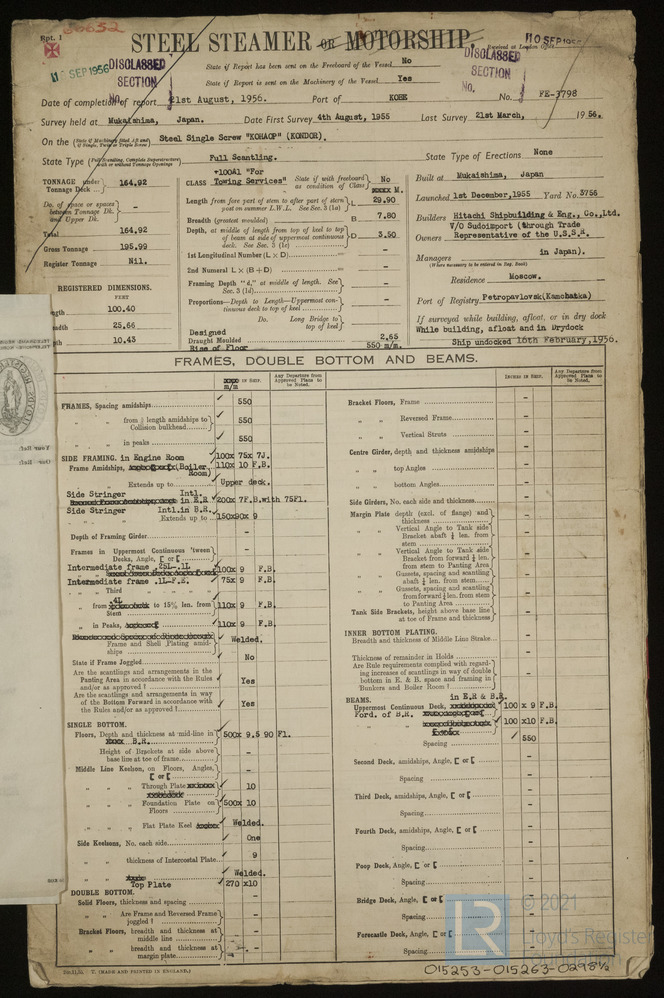 Rpt. 1
STEEL STEAMER OR MOTORSHIP
10 SEP 1956
16 SEP 1956
DISCLASSED
SECTION
No.
DISCLASSED
SECTION
No.
State if Report has been sent on the Freeboard of the Vessel No
State if Report is sent on the Machinery of the Vessel Yes
Date of completion of report 21st August, 1956. Port of KOBE No. FE-3798
Survey held at Mukaishima, Japan. Date First Survey 4th August, 1955 Last Survey 21st March, 1956.
On the Steel Single Screw "KOHAOP" (KONDOR).
State Type Full Scantling. State Type of Erections None
TONNAGE under Tonnage Deck ... 164.92
Do. of space or spaces between Tonnage Dk. and Upper Dk. -
Total 164.92
Gross Tonnage 195.99
Register Tonnage Nil.
REGISTERED DIMENSIONS.
FEET
100.40
25.66
10.43
CLASS +100A1 "For Towing Services" State if with freeboard as condition of Class No
Length from fore part of stem to after part of stern post on summer L.W.L. See Sec. 3 (1a) L 29.90
Breadth (greatest moulded) B 7.80
Depth, at middle of length from top of keel to top of beam at side of uppermost continuous deck. See Sec. 3 (1c) D 3.50
1st Longitudinal Number (L × D) -
2nd Numeral L × (B + D) -
Framing Depth "d," at middle of length. See Sec. 3 (1d) -
Proportions—Depth to Length—Uppermost continuous deck to top of keel -
Do. Long Bridge to top of keel
Designed
Draught Moulded 2.65
Rise of Floor 550 m/m.
Built at Mukaishima, Japan
Launched 1st December, 1955 Yard No. 3756
Builders Hitachi Shipbuilding & Eng., Co., Ltd.
Owners V/O Sudoimport (through Trade Representative of the U.S.S.R. in Japan).
Managers
(Where necessary to be entered in Reg. Book)
Residence Moscow.
Port of Registry Petropavlovsk (Kamchatka)
If surveyed while building, afloat, or in dry dock
While building, afloat and in Drydock
Ship undocked 16th February, 1956.
FRAMES, DOUBLE BOTTOM AND BEAMS.
m/m
Any Departure from Approved Plans to be Noted.
FRAMES, Spacing amidships 550
" " from ⅗ length amidships to Collision bulkhead 550
" " in peaks 550
SIDE FRAMING. in Engine Room 100x 75x 7J.
Frame Amidships, (Boiler Room) 110x 10 F.B.
" " Extends up to Upper deck.
Side Stringer Intl. in E.R 200x 7F.B. with 75Fl.
Side Stringer Intl. in B.R.
" " Extends up to 150x90x 9
Depth of Framing Girder -
Frames in Uppermost Continuous 'tween Decks, Angle, [ or [ -
Intermediate frame .25L-.1L 100x 9 F.B.
Intermediate frame .1L-F.E. 75x 9 F.B.
" " Third -
" " from .4L to 15% len. from Stem 110x 9 F.B.
" " in Peaks, 110x 9 F.B.
Frame and Shell Plating amidships Welded.
State if Frame Joggled No
Are the scantlings and arrangements in the Panting Area in accordance with the Rules and/or as approved! Yes
Are the scantlings and arrangements in way of the Bottom Forward in accordance with the Rules and/or as approved! Yes
SINGLE BOTTOM.
Floors, Depth and thickness at mid-line in B.R. 500x 9.5 90 Fl.
Height of Brackets at side above base line at toe of frame -
Middle Line Keelson, on Floors, Angles, [ or [ -
" " Through Plate 10
" " Foundation Plate on Floors 500x 10
" " Flat Plate Keel Welded.
Side Keelsons, No. each side One
" " thickness of Intercostal Plate 9
" " Welded.
Top Plate 270 x10
DOUBLE BOTTOM.
Solid Floors, thickness and spacing -
" " Are Frame and Reversed Frame joggled! -
Bracket Floors, breadth and thickness at middle line -
" " breadth and thickness at margin plate -
INCHES IN SHIP.
Any Departure from Approved Plans to be Noted.
Bracket Floors, Frame -
" " Reversed Frame -
" " Vertical Struts -
Centre Girder, depth and thickness amidships -
" " top Angles -
" " bottom Angles -
Side Girders, No. each side and thickness -
Margin Plate depth (excl. of flange) and thickness -
" " Vertical Angle to Tank side Bracket abaft ¼ len. from stem -
" " Vertical Angle to Tank side Bracket from forward ¼ len. from stem to Panting Area -
" " Gussets, spacing and scantling abaft ¼ len. from stem -
" " Gussets, spacing and scantling from forward ¼ len. from stem to Panting Area -
Tank Side Brackets, height above base line at toe of Frame and thickness -
INNER BOTTOM PLATING.
Breadth and thickness of Middle Line Strake -
Thickness of remainder in Holds -
Are Rule requirements complied with regarding increases of scantlings in way of double bottom in E. & B. space and framing in Bunkers and Boiler Room! -
BEAMS. in E.R & B.R.
Uppermost Continuous Deck, 100 x 9 F.B.
Ford. of B.R. 100 x10 F.B.
Spacing 550
Second Deck, amidships, Angle, [ or [ -
Spacing -
Third Deck, amidships, Angle, [ or [ -
Spacing -
Fourth Deck, amidships, Angle, [ or [ -
Spacing -
Poop Deck, Angle, [ or [ -
Spacing -
Bridge Deck, Angle, [ or [ -
Spacing -
Forecastle Deck, Angle, [ or [ -
Spacing -
(MADE AND PRINTED IN ENGLAND.)
015253-015263-0298½
© 2021
LR
Lloyd's Register
Foundation